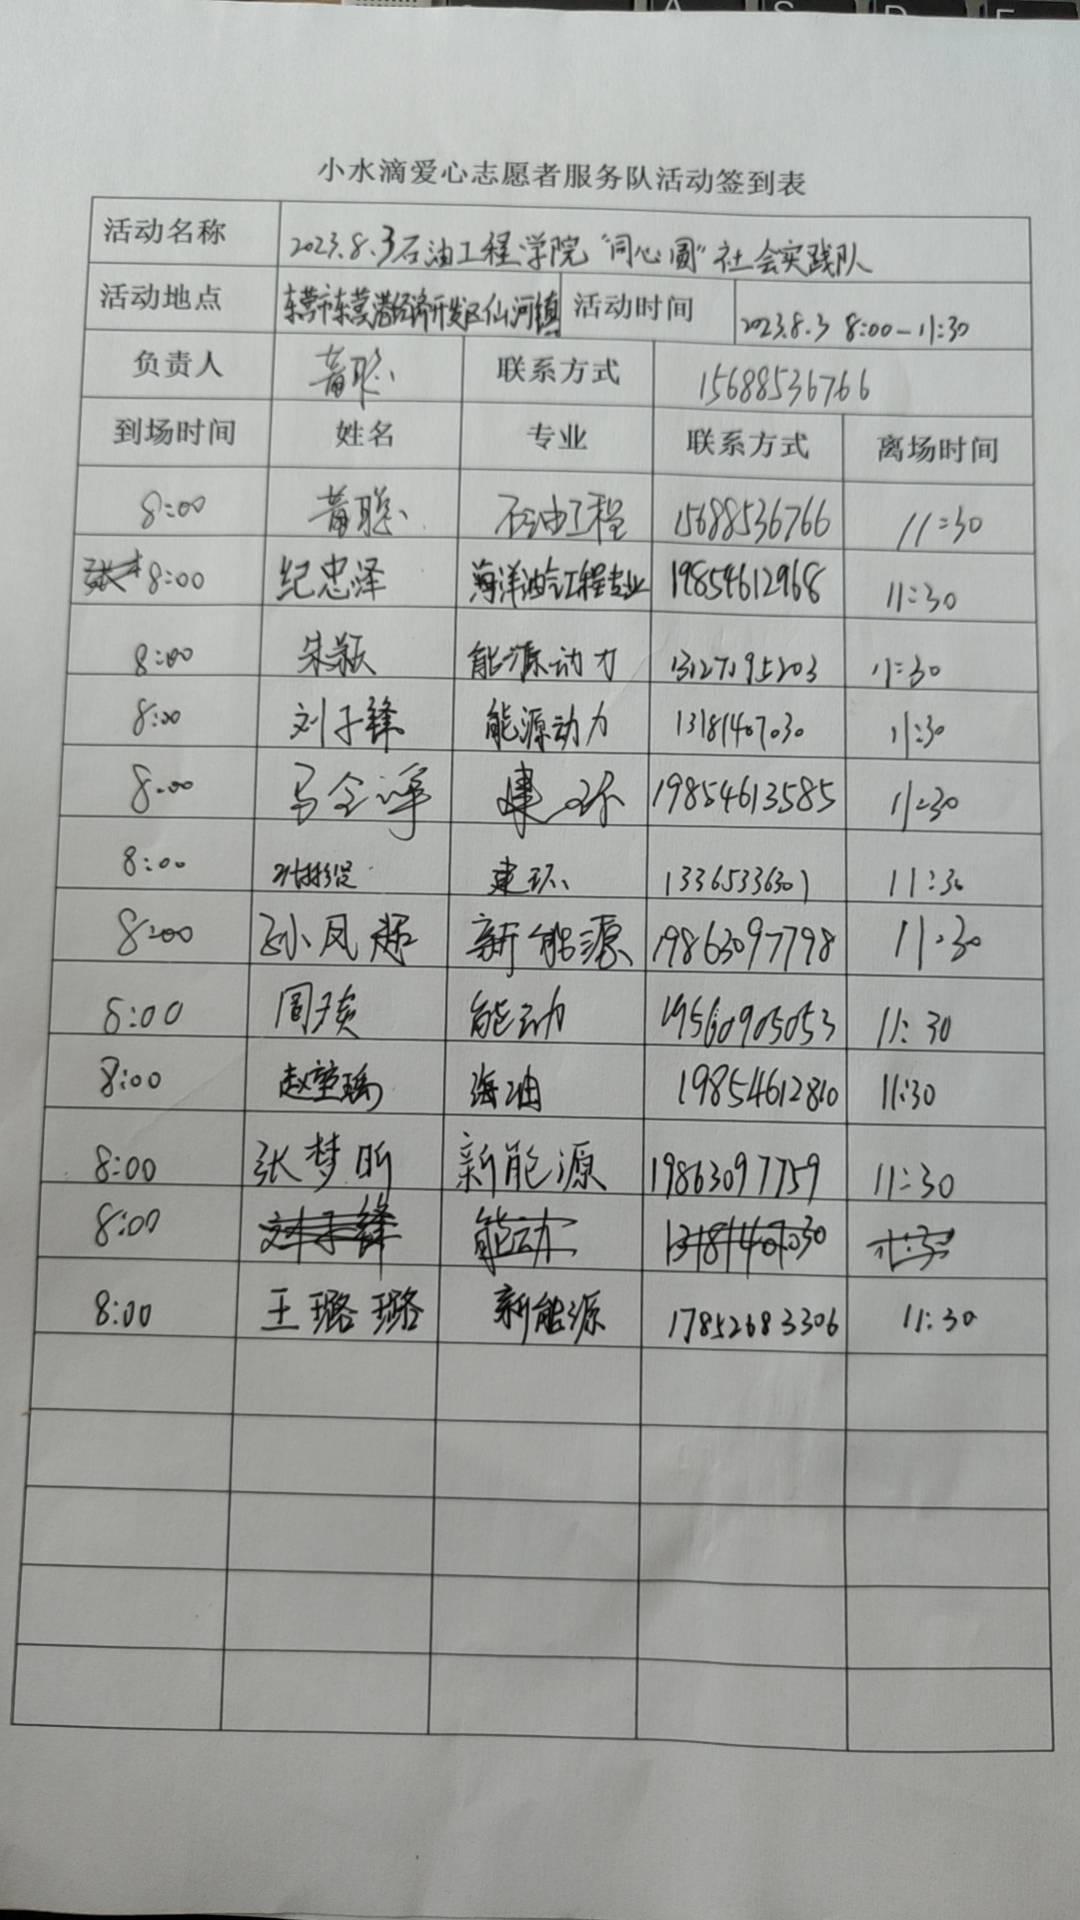 小水滴爱心志愿者服务队活动签到表
活动名称 2023.8.3石油工程学院"同心圆"社会实践队
活动地点 东营市东营港经济开发区仙河镇 活动时间 2023.8.3 8:00-11:30
负责人 黄聪 联系方式 15688536766
到场时间 姓名 专业 联系方式 离场时间
8:00 黄聪 石油工程 15688536766 11:30
8:00 纪忠泽 海洋油气工程专业 19854612968 11:30
8:00 朱颖 能源动力 13127195203 11:30
8:00 刘子锋 能源动力 13181407030 11:30
8:00 马全 建环 19854613585 11:30
8:00 建环 13365336307 11:30
8:00 孙凤 新能源 19863097798 11:30
8:00 周 能动 19560905053 11:30
8:00 赵堃瑀 海油 19854612810 11:30
8:00 张梦昕 新能源 19863097759 11:30
8:00 刘子锋 能动 13181407030 11:30
8:00 王璐璐 新能源 17852683306 11:30